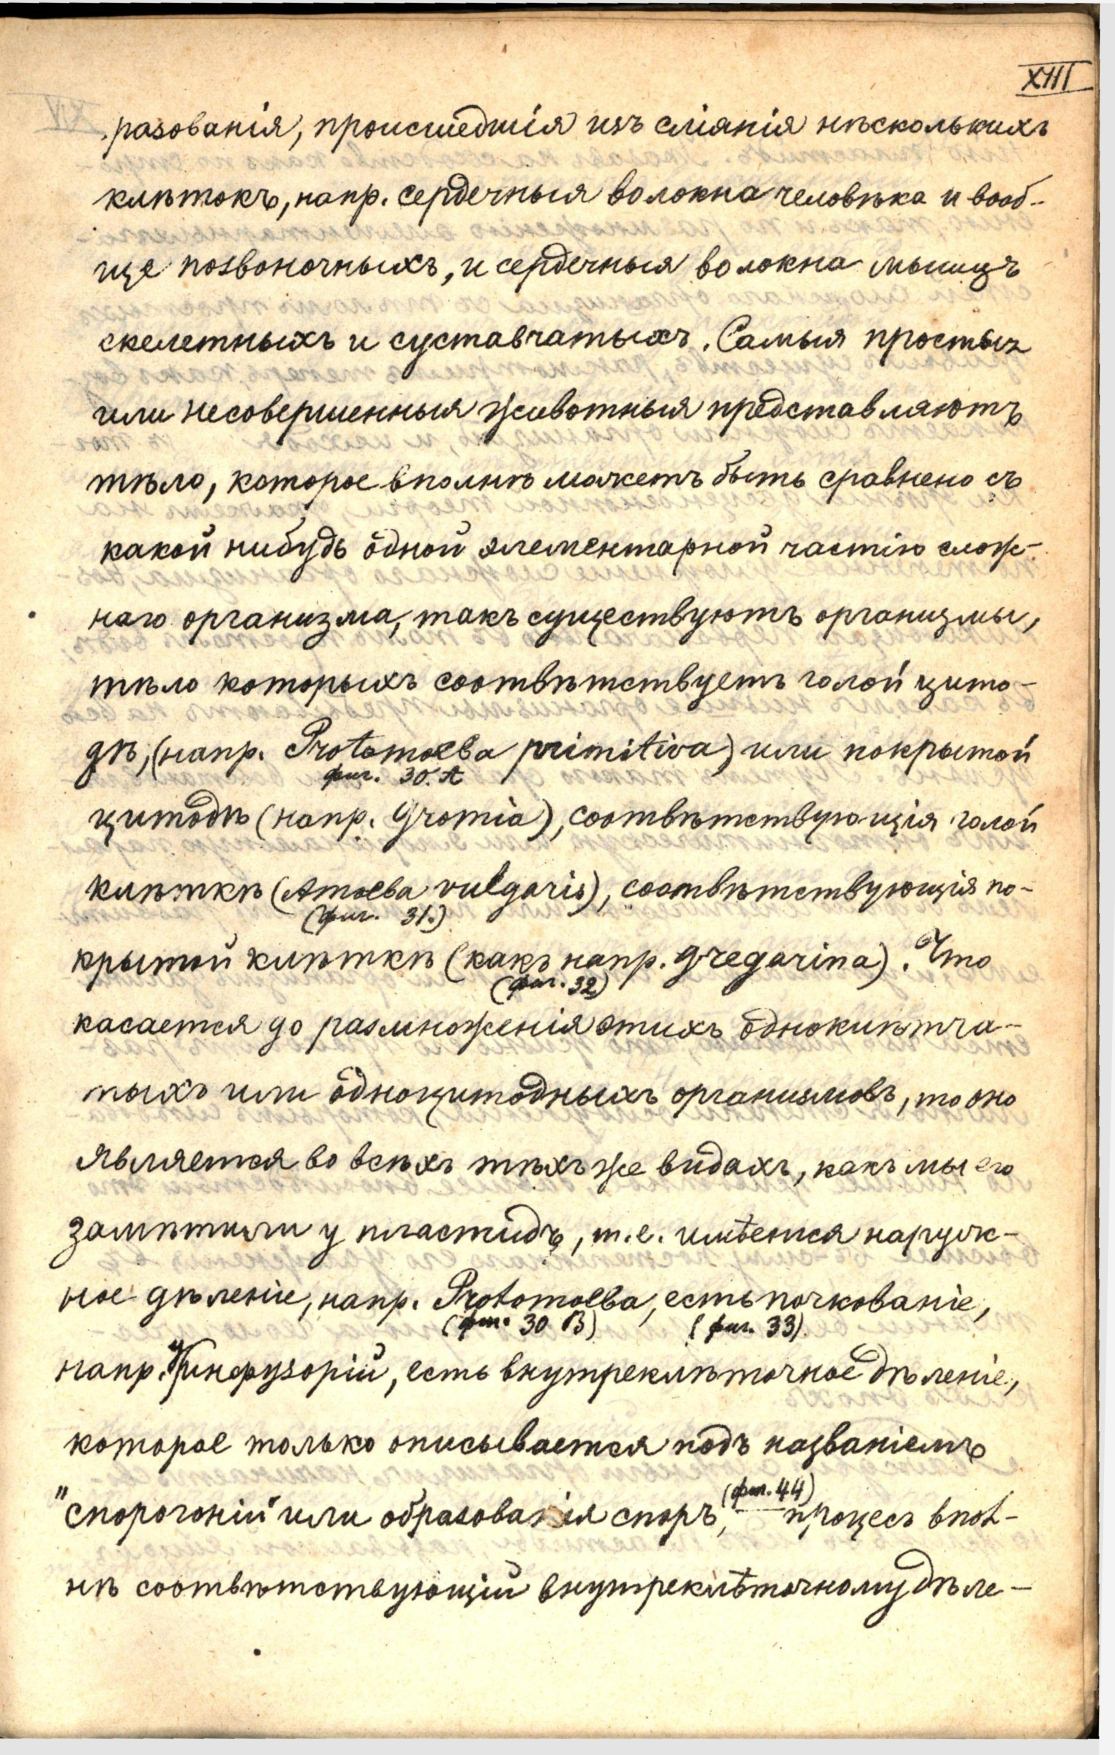 XIII
разованія, происшедшія изъ сліянія нѣсколькихъ
клѣтокъ, напр. сердечныя волокна человѣка и вооб-
ще позвоночныхъ, и сердечныя волокна мышцъ
скелетныхъ и суставчатыхъ. Самыя простыя
или несовершенныя животныя представляютъ
тѣло, которое вполнѣ можетъ быть сравнено съ
какой нибудь одной элементарной частію слож-
наго организма, такъ существуютъ организмы,
тѣло которыхъ соотвѣтствуетъ голой цито-
дѣ, (напр. Protamoeba primitiva) или покрытой
фиг. 30. A
цитодѣ (напр. Gromia), соотвѣтствующія голой
клѣткѣ (Amoeba vulgaris), соотвѣтствующія по-
(фиг. 31.)
крытой клѣткѣ (какъ напр. Gregarina). Что
(фиг. 32)
касается до размноженія этихъ одноклѣтча-
тыхъ или одноцитодныхъ организмовъ, то оно
является во всѣхъ тѣхъ же видахъ, какъ мы его
замѣтили у пластидъ, т.е. имѣется наруж-
ное дѣленіе, напр. Protamoeba, есть почкованіе,
(фиг. 30 B) (фиг. 33)
напр. у инфузорій, есть внутреклѣточное дѣленіе,
которое только описывается подъ названіемъ
(фиг. 44)
"спорогоніи" или образованія споръ, процесъ впол-
нѣ соотвѣтствующій внутреклѣточному дѣле-